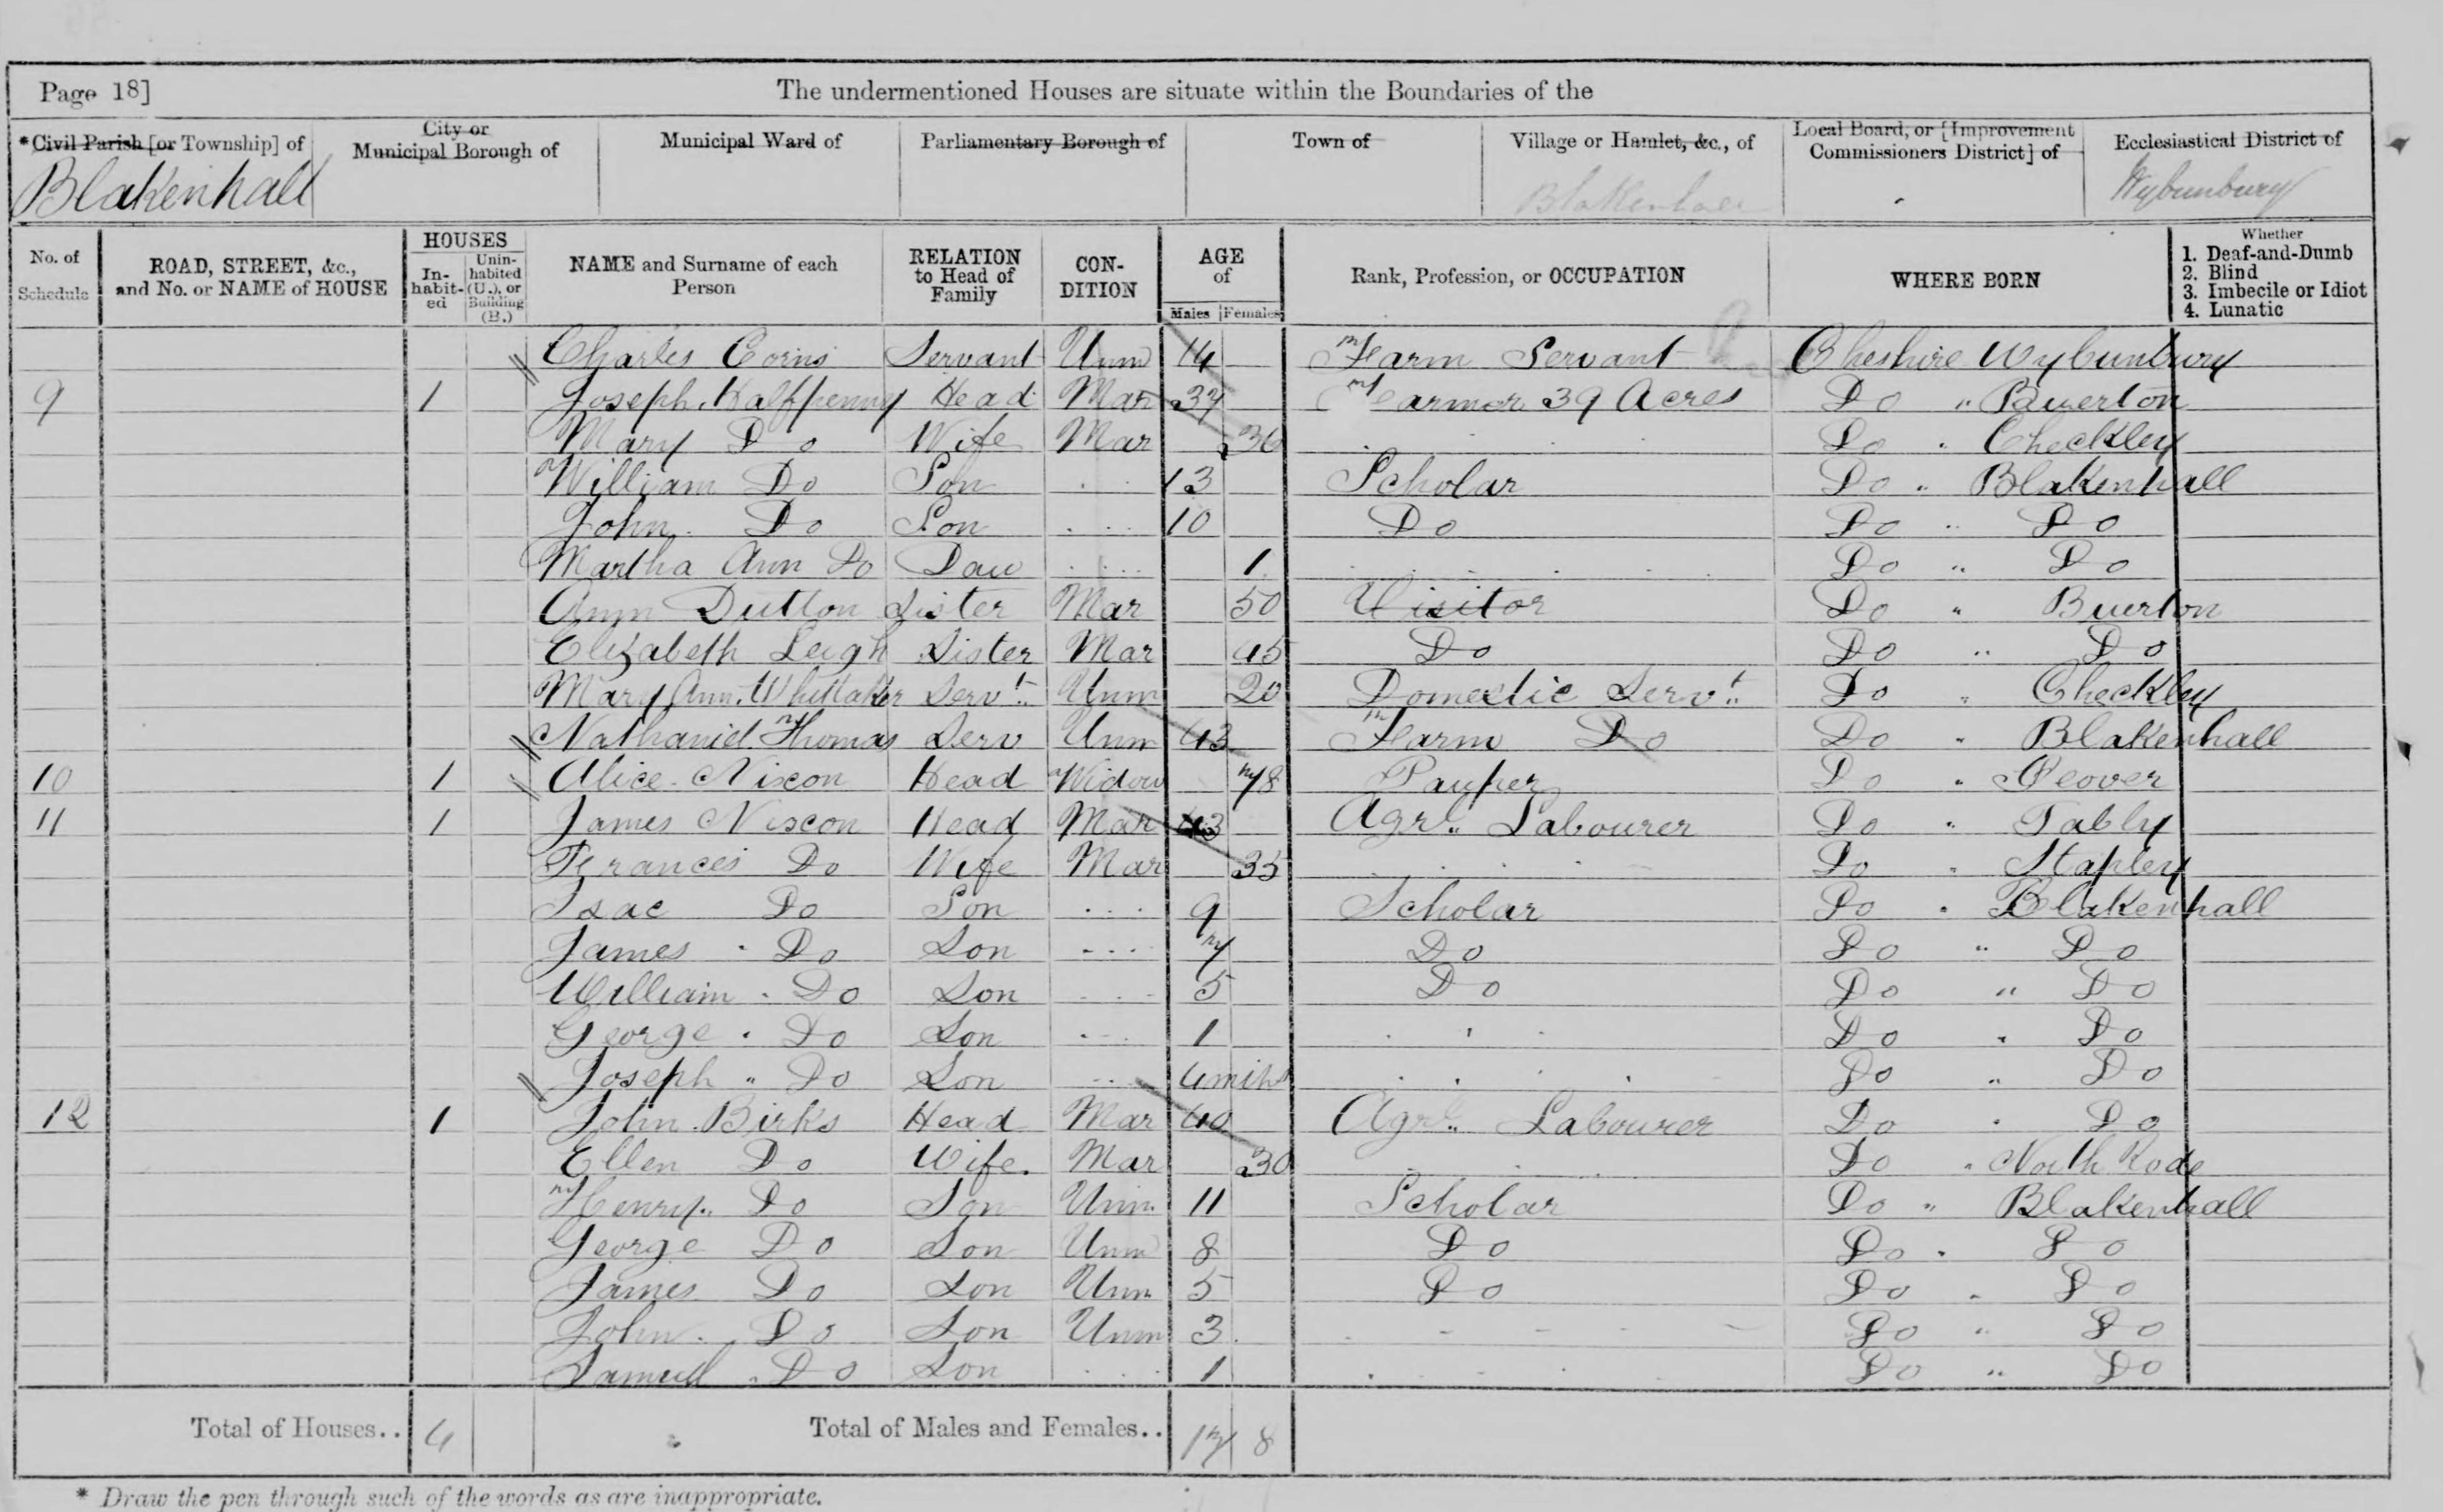 Page 18]
The undermentioned Houses are situate within the Boundaries of the
*Civil Parish [or Township] of Blakenhall
City or Municipal Borough of
Municipal Ward of
Parliamentary Borough of
Town of
Village or Hamlet, &c., of Blakenhall
Local Board, or [Improvement Commissioners District] of
Ecclesiastical District of Wybunbury
No. of Schedule
ROAD, STREET, &c., and No. or NAME of HOUSE
HOUSES
In-habit-ed
Unin-habited (U.), or Building (B.)
NAME and Surname of each Person
RELATION to Head of Family
CON-DITION
AGE of
Males Females
Rank, Profession, or OCCUPATION
WHERE BORN
Whether
1. Deaf-and-Dumb
2. Blind
3. Imbecile or Idiot
4. Lunatic
Charles Corns Servant Unm 14 Farm Servant Cheshire Wybunbury
9 1 Joseph Halfpenny Head Mar 37 Farmer 39 Acres Do " Buerton
Mary Do Wife Mar 36 Do " Checkley
William Do Son 13 Scholar Do " Blakenhall
John Do Son 10 Do Do " Do
Martha Ann Do Dau 1 Do " Do
Ann Dutton Sister Mar 50 Visitor Do " Buerton
Elizabeth Leigh Sister Mar 45 Do Do " Do
Mary Ann Whittaker Servt Unm 20 Domestic Servt Do " Checkley
Nathaniel Thomas Serv Unm 43 Farm Do Do " Blakenhall
10 1 Alice Nixon Head Widow 78 Pauper Do " Peover
11 1 James Nixon Head Mar 43 Agrl. Labourer Do " Tably
Frances Do Wife Mar 35 Do " Stapley
Isac Do Son 9 Scholar Do " Blakenhall
James Do Son 7 Do Do " Do
William Do Son 5 Do Do " Do
George Do Son 1 Do " Do
Joseph " Do Son 4 mths Do " Do
12 1 John Birks Head Mar 40 Agrl. Labourer Do " Do
Ellen Do Wife Mar 30 Do " North Rode
Henry Do Son Unm 11 Scholar Do " Blakenhall
George Do Son Unm 8 Do Do " Do
James Do Son Unm 5 Do Do " Do
John Do Son Unm 3 Do " Do
Samuel Do Son 1 Do " Do
Total of Houses.. 4
Total of Males and Females.. 17 8
* Draw the pen through such of the words as are inappropriate.